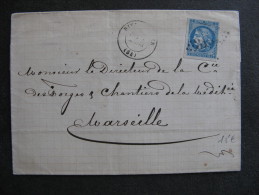 Monsieur le Directeur de la Cie
des Forges & Chantiers de la Médite
Marseille